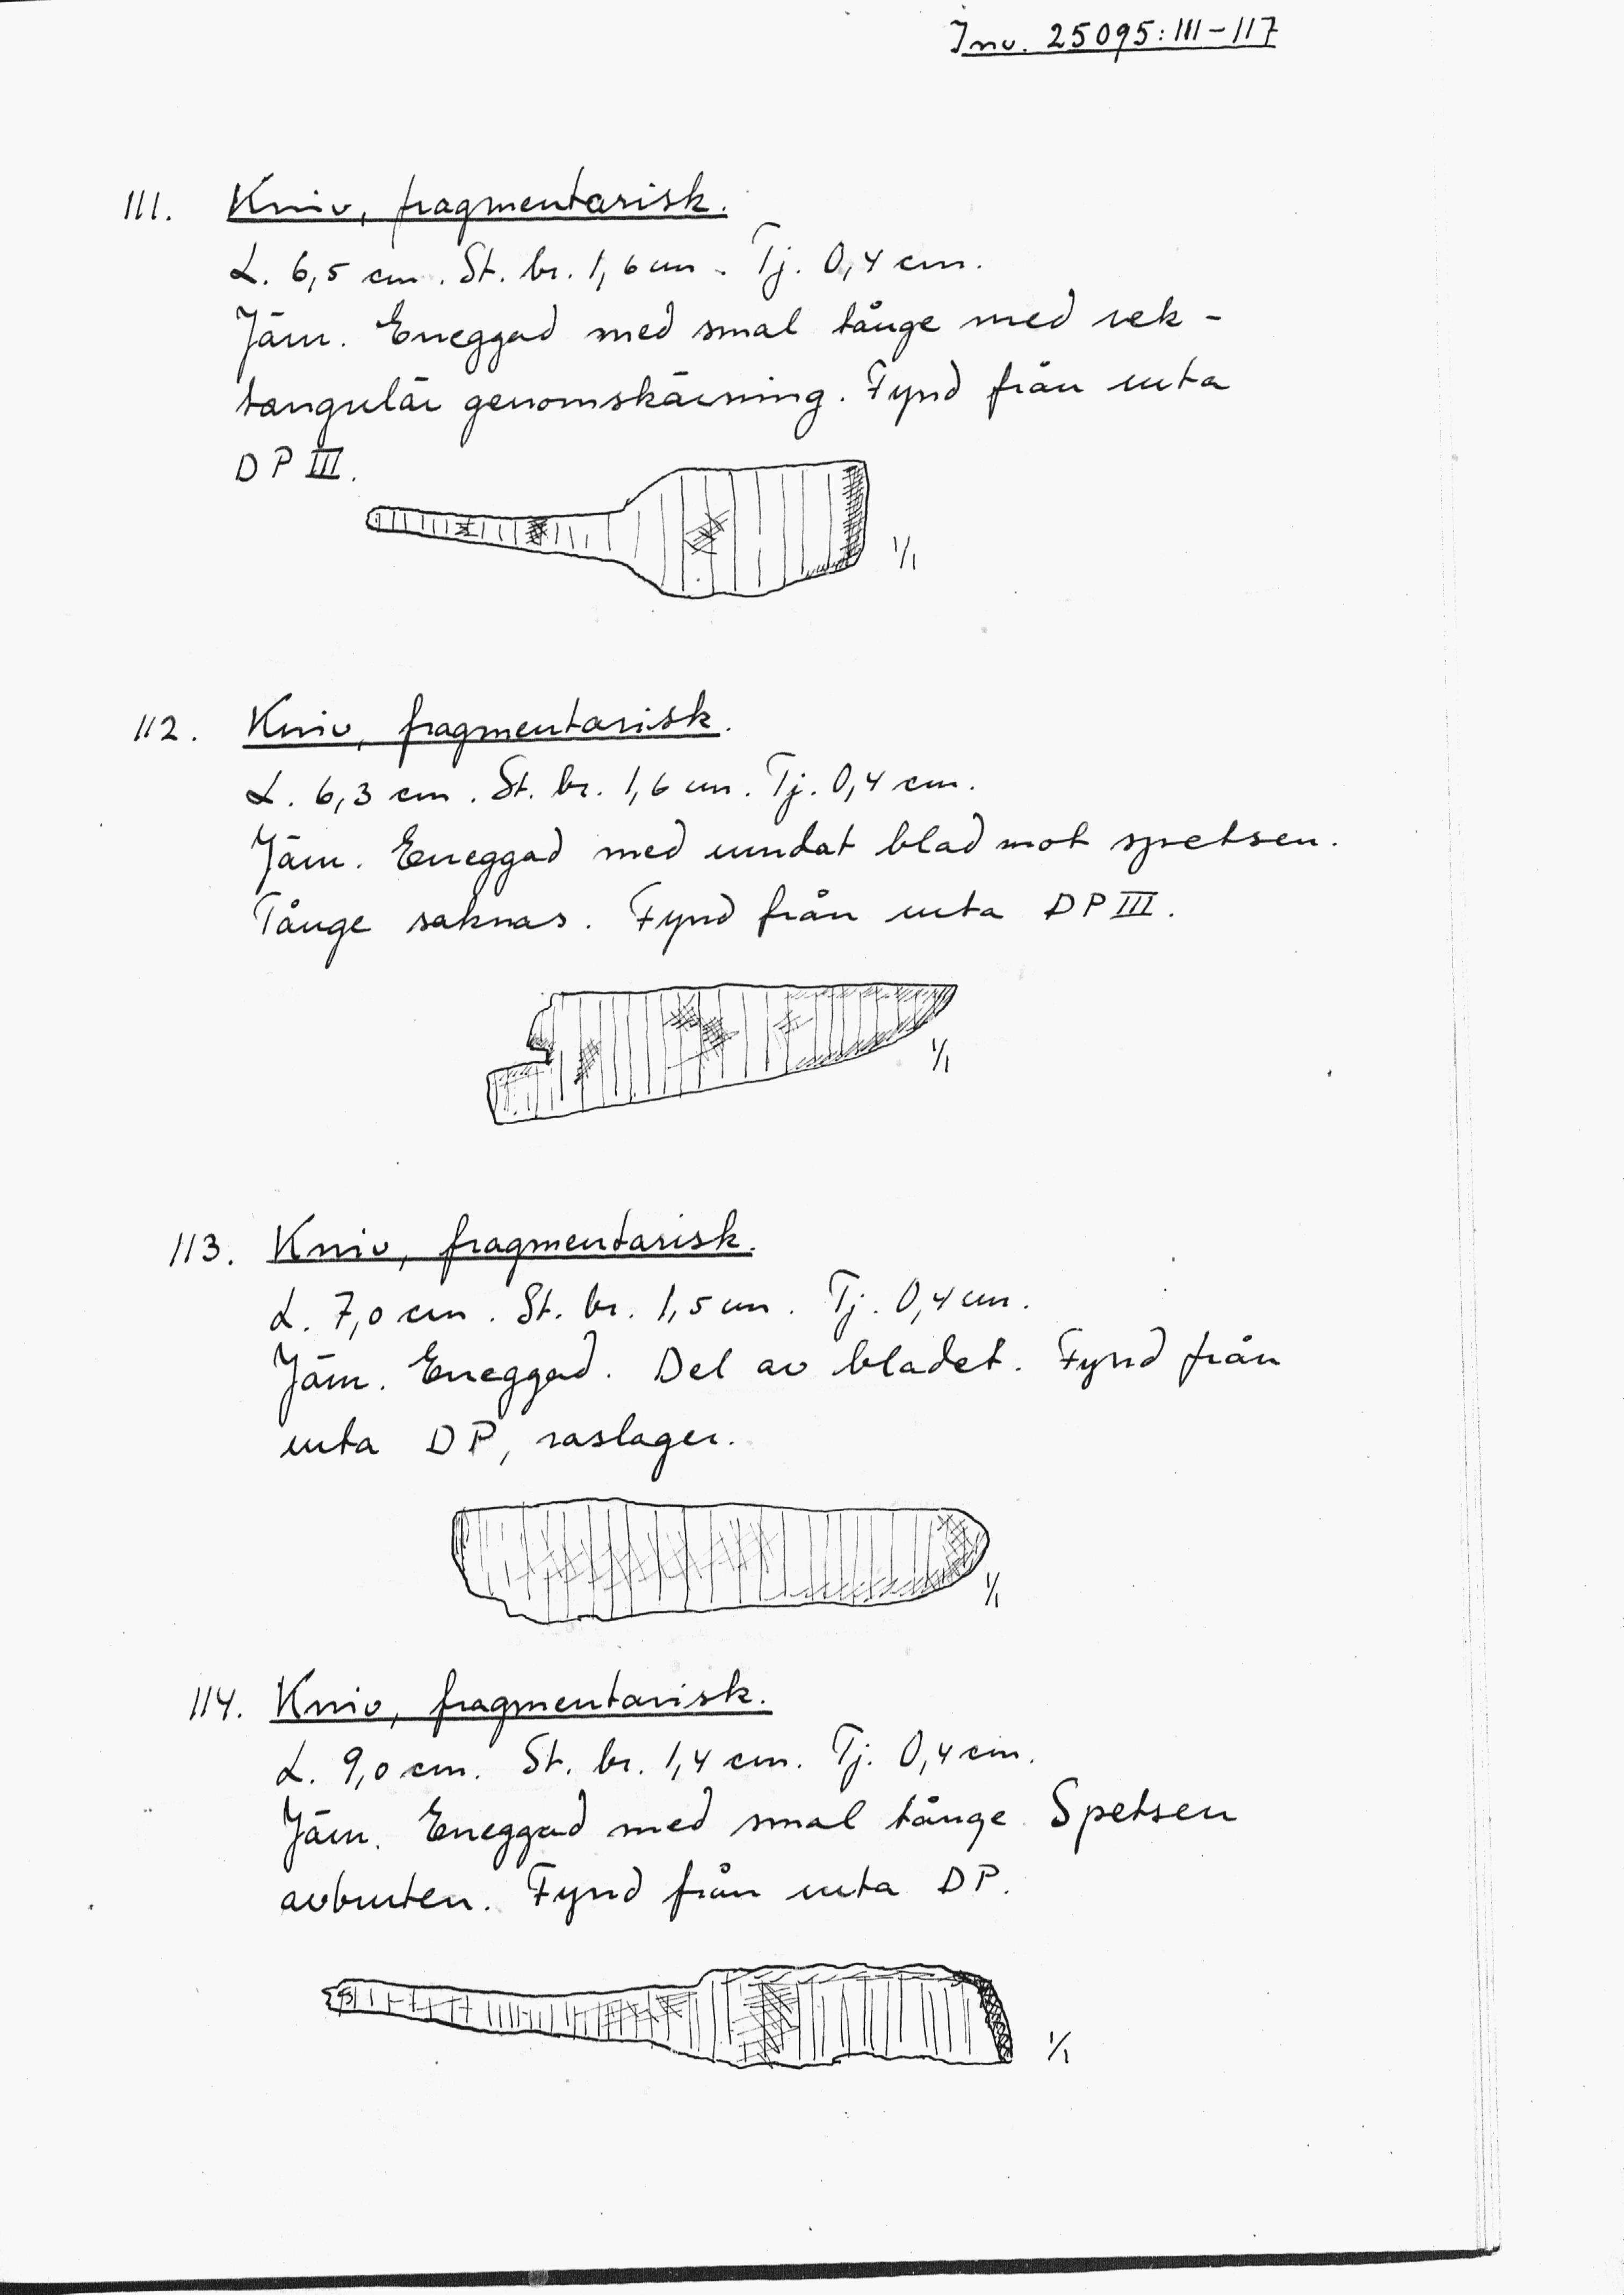 Inv. 25095:111-117
111. Kniv, fragmentarisk.
L. 6,5 cm. St. br. 1,6 cm. Tj. 0,4 cm.
Järn. Eneggad med smal tånge med rek-
tangulär genomskärning. Fynd från ruta
DP III.
1/1
112. Kniv, fragmentarisk.
L. 6,3 cm. St. br. 1,6 cm. Tj. 0,4 cm.
Järn. Eneggad med rundat blad mot spetsen.
Tånge saknas. Fynd från ruta DP III.
1/1
113. Kniv, fragmentarisk.
L. 7,0 cm. St. br. 1,5 cm. Tj. 0,4 cm.
Järn. Eneggad. Del av bladet. Fynd från
ruta DP, raslager.
1/1
114. Kniv, fragmentarisk.
L. 9,0 cm. St. br. 1,4 cm. Tj. 0,4 cm.
Järn. Eneggad med smal tånge. Spetsen
avbruten. Fynd från ruta DP.
1/1